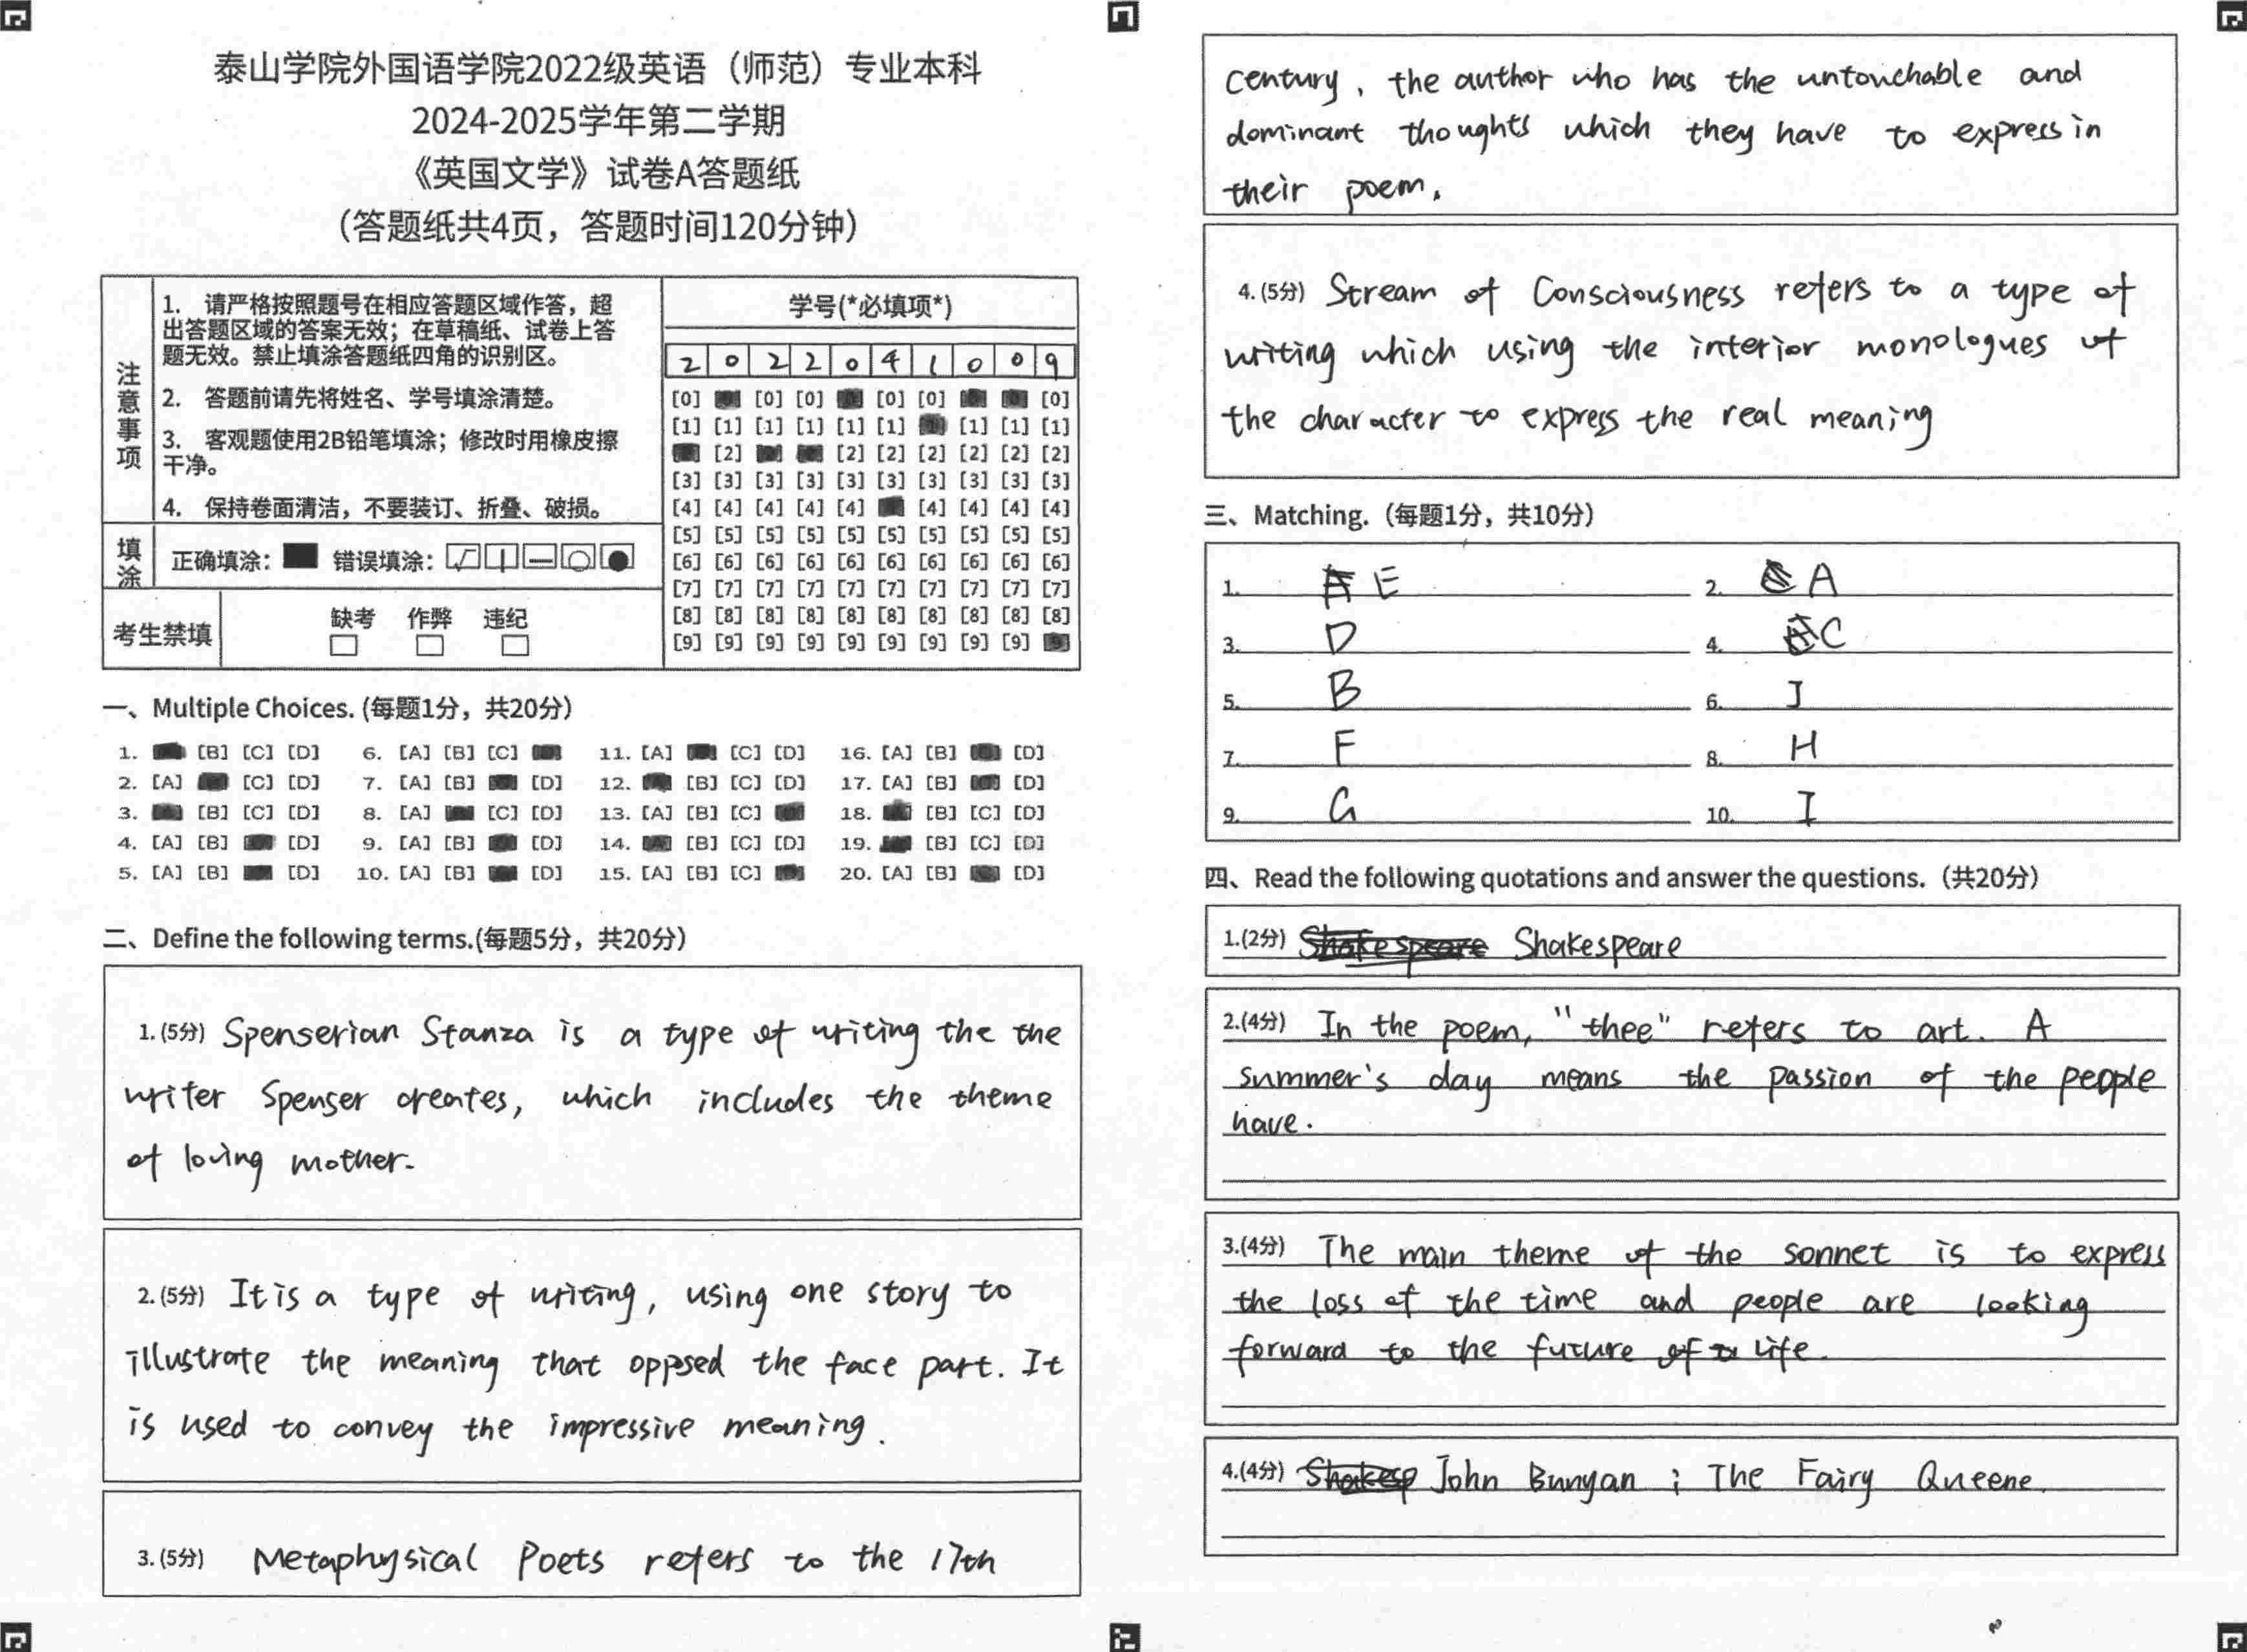 泰山学院外国语学院2022级英语（师范）专业本科
2024-2025学年第二学期
《英国文学》试卷A答题纸
（答题纸共4页，答题时间120分钟）
注意事项
1. 请严格按照题号在相应答题区域作答，超
出答题区域的答案无效；在草稿纸、试卷上答
题无效。禁止填涂答题纸四角的识别区。
2. 答题前请先将姓名、学号填涂清楚。
3. 客观题使用2B铅笔填涂；修改时用橡皮擦
干净。
4. 保持卷面清洁，不要装订、折叠、破损。
填涂 正确填涂： 错误填涂：
考生禁填 缺考 作弊 违纪
学号(*必填项*)
2 0 2 2 0 4 1 0 0 9
[0] [0] [0] [0] [0] [0]
[1] [1] [1] [1] [1] [1] [1] [1] [1]
[2] [2] [2] [2] [2] [2] [2]
[3] [3] [3] [3] [3] [3] [3] [3] [3] [3]
[4] [4] [4] [4] [4] [4] [4] [4] [4]
[5] [5] [5] [5] [5] [5] [5] [5] [5] [5]
[6] [6] [6] [6] [6] [6] [6] [6] [6] [6]
[7] [7] [7] [7] [7] [7] [7] [7] [7] [7]
[8] [8] [8] [8] [8] [8] [8] [8] [8] [8]
[9] [9] [9] [9] [9] [9] [9] [9] [9]
一、Multiple Choices. (每题1分，共20分)
1. [B] [C] [D] 6. [A] [B] [C] 11. [A] [C] [D] 16. [A] [B] [D]
2. [A] [C] [D] 7. [A] [B] [D] 12. [B] [C] [D] 17. [A] [B] [D]
3. [B] [C] [D] 8. [A] [C] [D] 13. [A] [B] [C] 18. [B] [C] [D]
4. [A] [B] [D] 9. [A] [B] [D] 14. [B] [C] [D] 19. [B] [C] [D]
5. [A] [B] [D] 10. [A] [B] [D] 15. [A] [B] [C] 20. [A] [B] [D]
二、Define the following terms.(每题5分，共20分)
1. (5分) Spenserian Stanza is a type of writing the the
writer Spenser creates, which includes the theme
of loving mother.
2. (5分) It is a type of writing, using one story to
illustrate the meaning that oppsed the face part. It
is used to convey the impressive meaning.
3. (5分) Metaphysical Poets refers to the 17th
century, the author who has the untouchable and
dominant thoughts which they have to express in
their poem.
4. (5分) Stream of Consciousness refers to a type of
writing which using the interior monologues of
the character to express the real meaning
三、Matching.（每题1分，共10分）
1. E 2. A
3. D 4. C
5. B 6. J
7. F 8. H
9. G 10. I
四、Read the following quotations and answer the questions.（共20分）
1.(2分) Shakespeare Shakespeare
2.(4分) In the poem, "thee" refers to art. A
summer's day means the passion of the people
have.
3.(4分) The main theme of the sonnet is to express
the loss of the time and people are looking
forward to the future of life.
4.(4分) Shakesp John Bunyan ; The Fairy Queene.